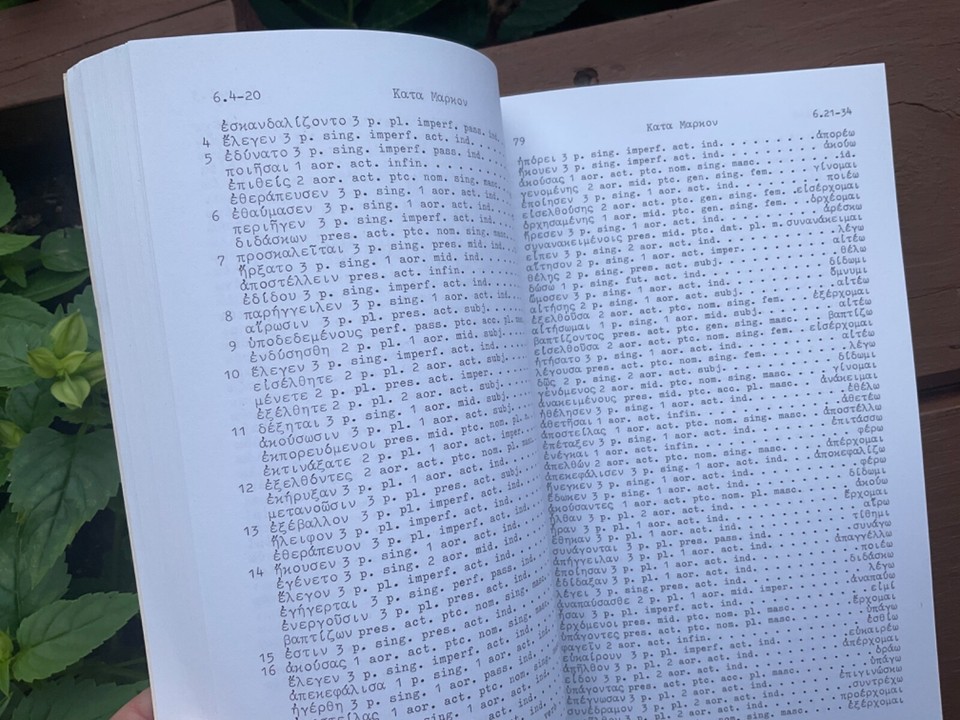 6.4-20 Κατα Μαρκον
ἐσκανδαλίζοντο 3 p. pl. imperf. pass. ind.
4 ἔλεγεν 3 p. sing. imperf. act. ind.
5 ἐδύνατο 3 p. sing. imperf. pass. ind.
ποιῆσαι 1 aor. act. infin.
ἐπιθείς 2 aor. act. ptc. nom. sing. masc.
ἐθεράπευσεν 3 p. sing. 1 aor. act. ind.
6 ἐθαύμασεν 3 p. sing. 1 aor. act. ind.
περιῆγεν 3 p. sing. imperf. act. ind.
διδάσκων pres. act. ptc. nom. sing. masc.
7 προσκαλεῖται 3 p. sing. pres. mid. ind.
ἤρξατο 3 p. sing. 1 aor. mid. ind.
ἀποστέλλειν pres. act. infin.
ἐδίδου 3 p. sing. imperf. act. ind.
8 παρήγγειλεν 3 p. sing. 1 aor. act. ind.
αἴρωσιν 3 p. pl. pres. act. subj.
9 ὑποδεδεμένους perf. pass. ptc. acc. pl. m.
ἐνδύσησθη 2 p. pl. 1 aor. mid. subj.
10 ἔλεγεν 3 p. sing. imperf. act. ind.
εἰσέλθητε 2 p. pl. 2 aor. act. subj.
μένετε 2 p. pl. pres. act. imper.
ἐξέλθητε 2 p. pl. 2 aor. act. subj.
11 δέξηται 3 p. sing. 1 aor. mid. subj.
ἀκούσωσιν 3 p. pl. 1 aor. act. subj.
ἐκπορευόμενοι pres. mid. ptc. nom. pl.
ἐκτινάξατε 2 p. pl. 1 aor. act. imper.
12 ἐξελθόντες 2 aor. act. ptc. nom. pl. masc.
ἐκήρυξαν 3 p. pl. 1 aor. act. ind.
μετανοῶσιν 3 p. pl. pres. act. subj.
13 ἐξέβαλλον 3 p. pl. imperf. act. ind.
ἤλειφον 3 p. pl. imperf. act. ind.
ἐθεράπευον 3 p. pl. imperf. act. ind.
14 ἤκουσεν 3 p. sing. 1 aor. act. ind.
ἐγένετο 3 p. sing. 2 aor. mid. ind.
ἔλεγον 3 p. pl. imperf. act. ind.
ἐγήγερται 3 p. sing. perf. pass. ind.
ἐνεργοῦσιν 3 p. pl. pres. act. ind.
βαπτίζων pres. act. ptc. nom. sing. masc.
15 ἐστιν 3 p. sing. pres. act. ind.
16 ἀκούσας 1 aor. act. ptc. nom. sing. masc.
ἔλεγεν 3 p. sing. imperf. act. ind.
ἀπεκεφάλισα 1 p. sing. 1 aor. act. ind.
ἠγέρθη 3 p. sing. 1 aor. pass. ind.
79 Κατα Μαρκον 6.21-34
ἠπόρει 3 p. sing. imperf. act. ind. ἀπορέω
ἤκουεν 3 p. sing. imperf. act. ind. ἀκούω
ἀκούσας 1 aor. act. ptc. nom. sing. masc. id.
γενομένης 2 aor. mid. ptc. gen. sing. fem. γίνομαι
ἐποίησεν 3 p. sing. 1 aor. act. ind. ποιέω
εἰσελθούσης 2 aor. act. ptc. gen. sing. fem. εἰσέρχομαι
ὀρχησαμένης 1 aor. mid. ptc. gen. sing. fem. ὀρχέομαι
ἤρεσεν 3 p. sing. 1 aor. act. ind. ἀρέσκω
συνανακειμένοις pres. mid. ptc. dat. pl. m. συνανάκειμαι
εἶπεν 3 p. sing. 2 aor. act. ind. λέγω
αἴτησον 2 p. sing. 1 aor. act. imper. αἰτέω
θέλῃς 2 p. sing. pres. act. subj. θέλω
δώσω 1 p. sing. fut. act. ind. δίδωμι
ὤμοσεν 3 p. sing. 1 aor. act. ind. ὄμνυμι
αἰτήσῃς 2 p. sing. 1 aor. act. subj. αἰτέω
ἐξελθοῦσα 2 aor. act. ptc. nom. sing. fem. ἐξέρχομαι
αἰτήσωμαι 1 p. sing. 1 aor. mid. subj. αἰτέω
βαπτίζοντος pres. act. ptc. gen. sing. masc. βαπτίζω
εἰσελθοῦσα 2 aor. act. ptc. nom. sing. fem. εἰσέρχομαι
ᾐτήσατο 3 p. sing. 1 aor. mid. ind. αἰτέω
λέγουσα pres. act. ptc. nom. sing. fem. λέγω
δῷς 2 p. sing. 2 aor. act. subj. δίδωμι
γενόμενος 2 aor. mid. ptc. nom. sing. masc. γίνομαι
ἀνακειμένους pres. mid. ptc. acc. pl. masc. ἀνάκειμαι
ἠθέλησεν 3 p. sing. 1 aor. act. ind. ἐθέλω
ἀθετῆσαι 1 aor. act. infin. ἀθετέω
ἀποστείλας 1 aor. act. ptc. nom. sing. masc. ἀποστέλλω
ἐπέταξεν 3 p. sing. 1 aor. act. ind. ἐπιτάσσω
ἐνέγκαι 1 aor. act. infin. φέρω
ἀπελθών 2 aor. act. ptc. nom. sing. masc. ἀπέρχομαι
ἀπεκεφάλισεν 3 p. sing. 1 aor. act. ind. ἀποκεφαλίζω
ἤνεγκεν 3 p. sing. 1 aor. act. ind. φέρω
ἔδωκεν 3 p. sing. 1 aor. act. ind. δίδωμι
ἀκούσαντες 1 aor. act. ptc. nom. pl. masc. ἀκούω
ἦλθαν 3 p. pl. 2 aor. act. ind. ἔρχομαι
ἦραν 3 p. pl. 1 aor. act. ind. αἴρω
ἔθηκαν 3 p. pl. 1 aor. act. ind. τίθημι
συνάγονται 3 p. pl. pres. pass. ind. συνάγω
ἀπήγγειλαν 3 p. pl. 1 aor. act. ind. ἀπαγγέλλω
ἐποίησαν 3 p. pl. 1 aor. act. ind. ποιέω
ἐδίδαξαν 3 p. pl. 1 aor. act. ind. διδάσκω
λέγει 3 p. sing. pres. act. ind. λέγω
ἀναπαύσασθε 2 p. pl. 1 aor. mid. imper. ἀναπαύω
ἦσαν 3 p. pl. imperf. act. ind. εἰμί
ἐρχόμενοι pres. mid. ptc. nom. pl. masc. ἔρχομαι
ὑπάγοντες pres. act. ptc. nom. pl. masc. ὑπάγω
φαγεῖν 2 aor. act. infin. ἐσθίω
εὐκαίρουν 3 p. pl. imperf. act. ind. εὐκαιρέω
ἀπῆλθον 3 p. pl. 2 aor. act. ind. ἀπέρχομαι
εἶδον 3 p. pl. 2 aor. act. ind. ὁράω
ὑπάγοντας pres. act. ptc. acc. pl. masc. ὑπάγω
ἐπέγνωσαν 3 p. pl. 2 aor. act. ind. ἐπιγινώσκω
συνέδραμον 3 p. pl. 2 aor. act. ind. συντρέχω
προέρχομαι